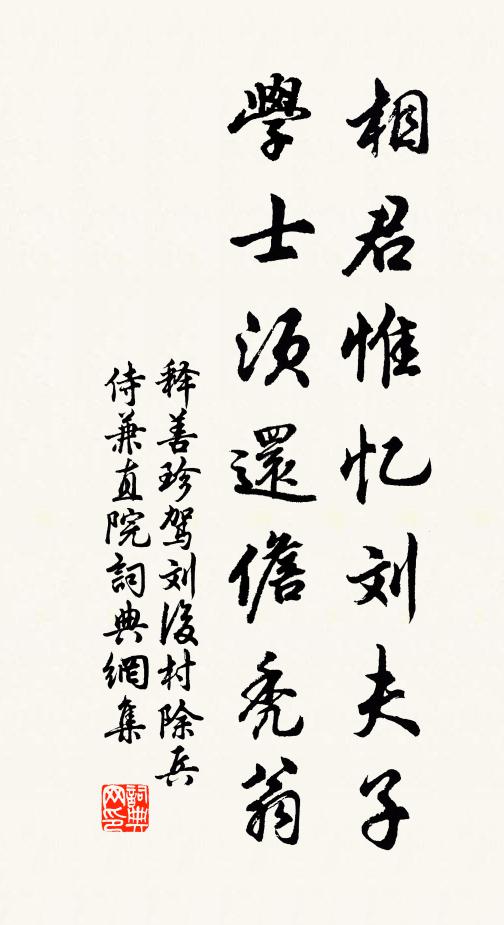 相君惟忆刘夫子
學士须還儋秃翁
释善珍驾刘後村除兵
侍兼直院詞典網集
詞典
网印